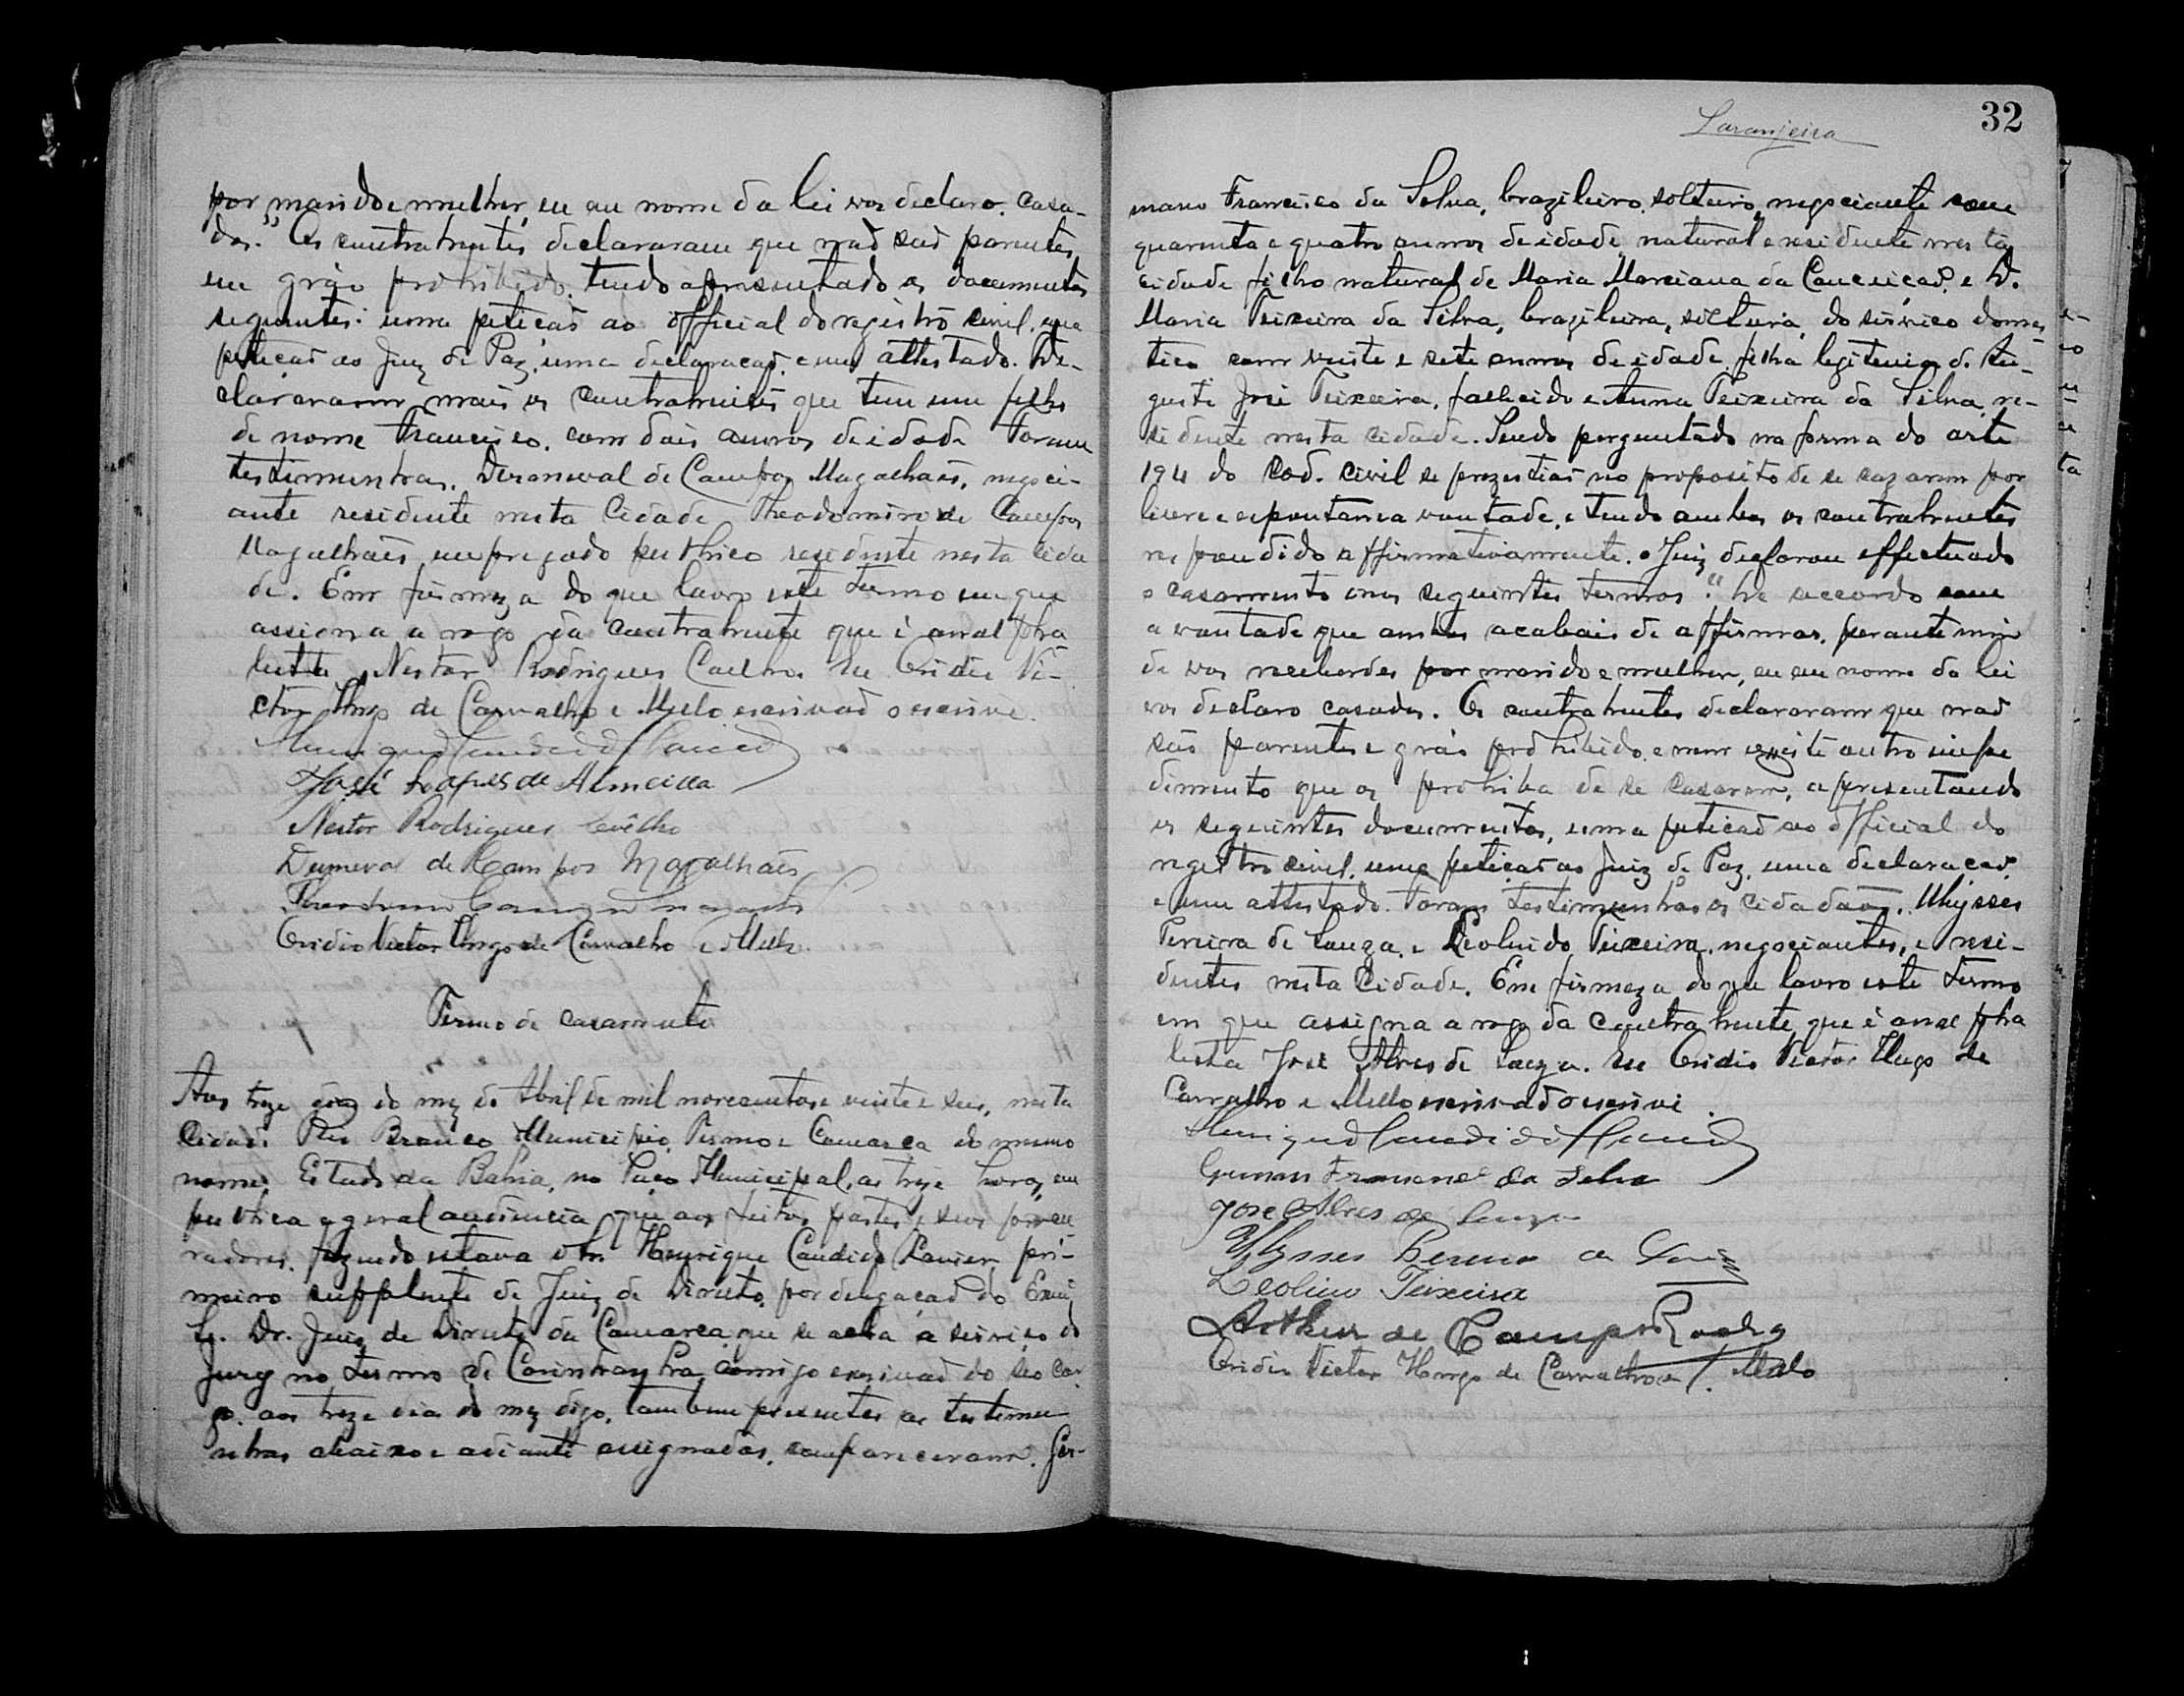 por marido e mulher, eu em nome da lei vos declaro, casa-
dos." Os contrahentes declararam que naõ saõ parentes
em gráo prohibido, tendo apresentado os documentos
seguintes: uma petiçaõ ao official do registro civil, uma
petiçaõ ao Juiz de Paz, uma declaraçaõ, e um attestado. De-
clararam mais os contrahentes que tem um filho
de nome Francisco, com dois annos de idade. Foram
testemunhas, de Campos Magalhaẽs, negoci-
ante residente nesta Cidade Theodomiro de Campos
Magalhaẽs empregado publico residente nesta cida
de. Em firmeza do que lavro este termo em que
assigna a rogo da contrahente que é analpha
beta Nestor Rodrigues Coelho. Eu Ovidio Vi-
ctor Hugo de Carvalho e Mello escrivaõ o escrevi.
Henrique Candido Xavier
José de Almeida
Nestor Rodrigues Coêlho
de Campos Magalhães
Ovidio Victor Hugo de Carvalho e Mello
Termo de casamento
Aos treze dias do mez de Abril de mil novecentos e vinte e seis, nesta
Cidade Rio Branco Municipio, Termo e Comarca do mesmo
nome, Estado da Bahia, no Paço Municipal, as treze horas, em
publica e geral audiencia que aos feitos, partes e seus procu
radores, fazendo estava o Sr. Henrique Candido Xavier, pri-
meiro supplente de Juiz de Direito, por delegaçaõ do Exmo
Sr. Dr. Juiz de Direito da Comarca que se acha a serviço do
Jury no termo de Carinhanha, comigo escrivaõ do seo car
go, aos treze dias do mez digo, tambem presentes as testemu
nhas abaixo e adiante assignadas, compareceram. Ger-
32
Laranjeira
mano Francisco da Silva, brazileiro, solteiro, negociante com
quarenta e quatro annos de idade, natural e residente nesta
cidade filho natural de Maria Marciana da Conceiçaõ, e D.
Maria Teixeira da Silva, brazileira, solteira, do serviço domes
tico com vinte e sete annos de idade filha legitima de Au-
gusto José Teixeira, fallecido e Anna Teixeira da Silva, re-
sidente nesta cidade. Sendo perguntado na forma do arte
194 do Cod. Civil se no proposito de se cazarem por
livre e espontanea vontade, e tendo ambos os contrahentes
respondido affirmativamente, o Juiz declarou effectuado
o casamento nos seguintes termos: "De accordo com
a vontade que ambos acabais de affirmar, perante mim
de vos receberdes por marido e mulher, eu em nome da lei
vos declaro casados. Os contrahentes declararam que naõ
saõ parentes e gráo prohibido, e nem existe outro impe
dimento que os prohiba de se casarem, apresentando
os seguintes documentos, uma petiçaõ ao official do
registro civil, uma petiçaõ ao Juiz de Paz, uma declaraçaõ
e um attestado. Foram testemunhas os cidadaõs, Ulysses
Pereira de Souza, e Teixeira, negociantes, e resi-
dentes nesta Cidade. Em firmeza do que lavro este termo
em que assigna a rogo da contrahente que é analpha
beta José Alves de Souza. Eu Ovidio Victor Hugo de
Carvalho e Mello escrivaõ o escrevi.
Henrique Candido Xavier
Germano Francisco da Silva
José Alves de Souza
Ulysses Pereira de Souza
Leolino Teixeira
Arthur de Campos Rocha
Ovidio Victor Hugo de Carvalho e Mello